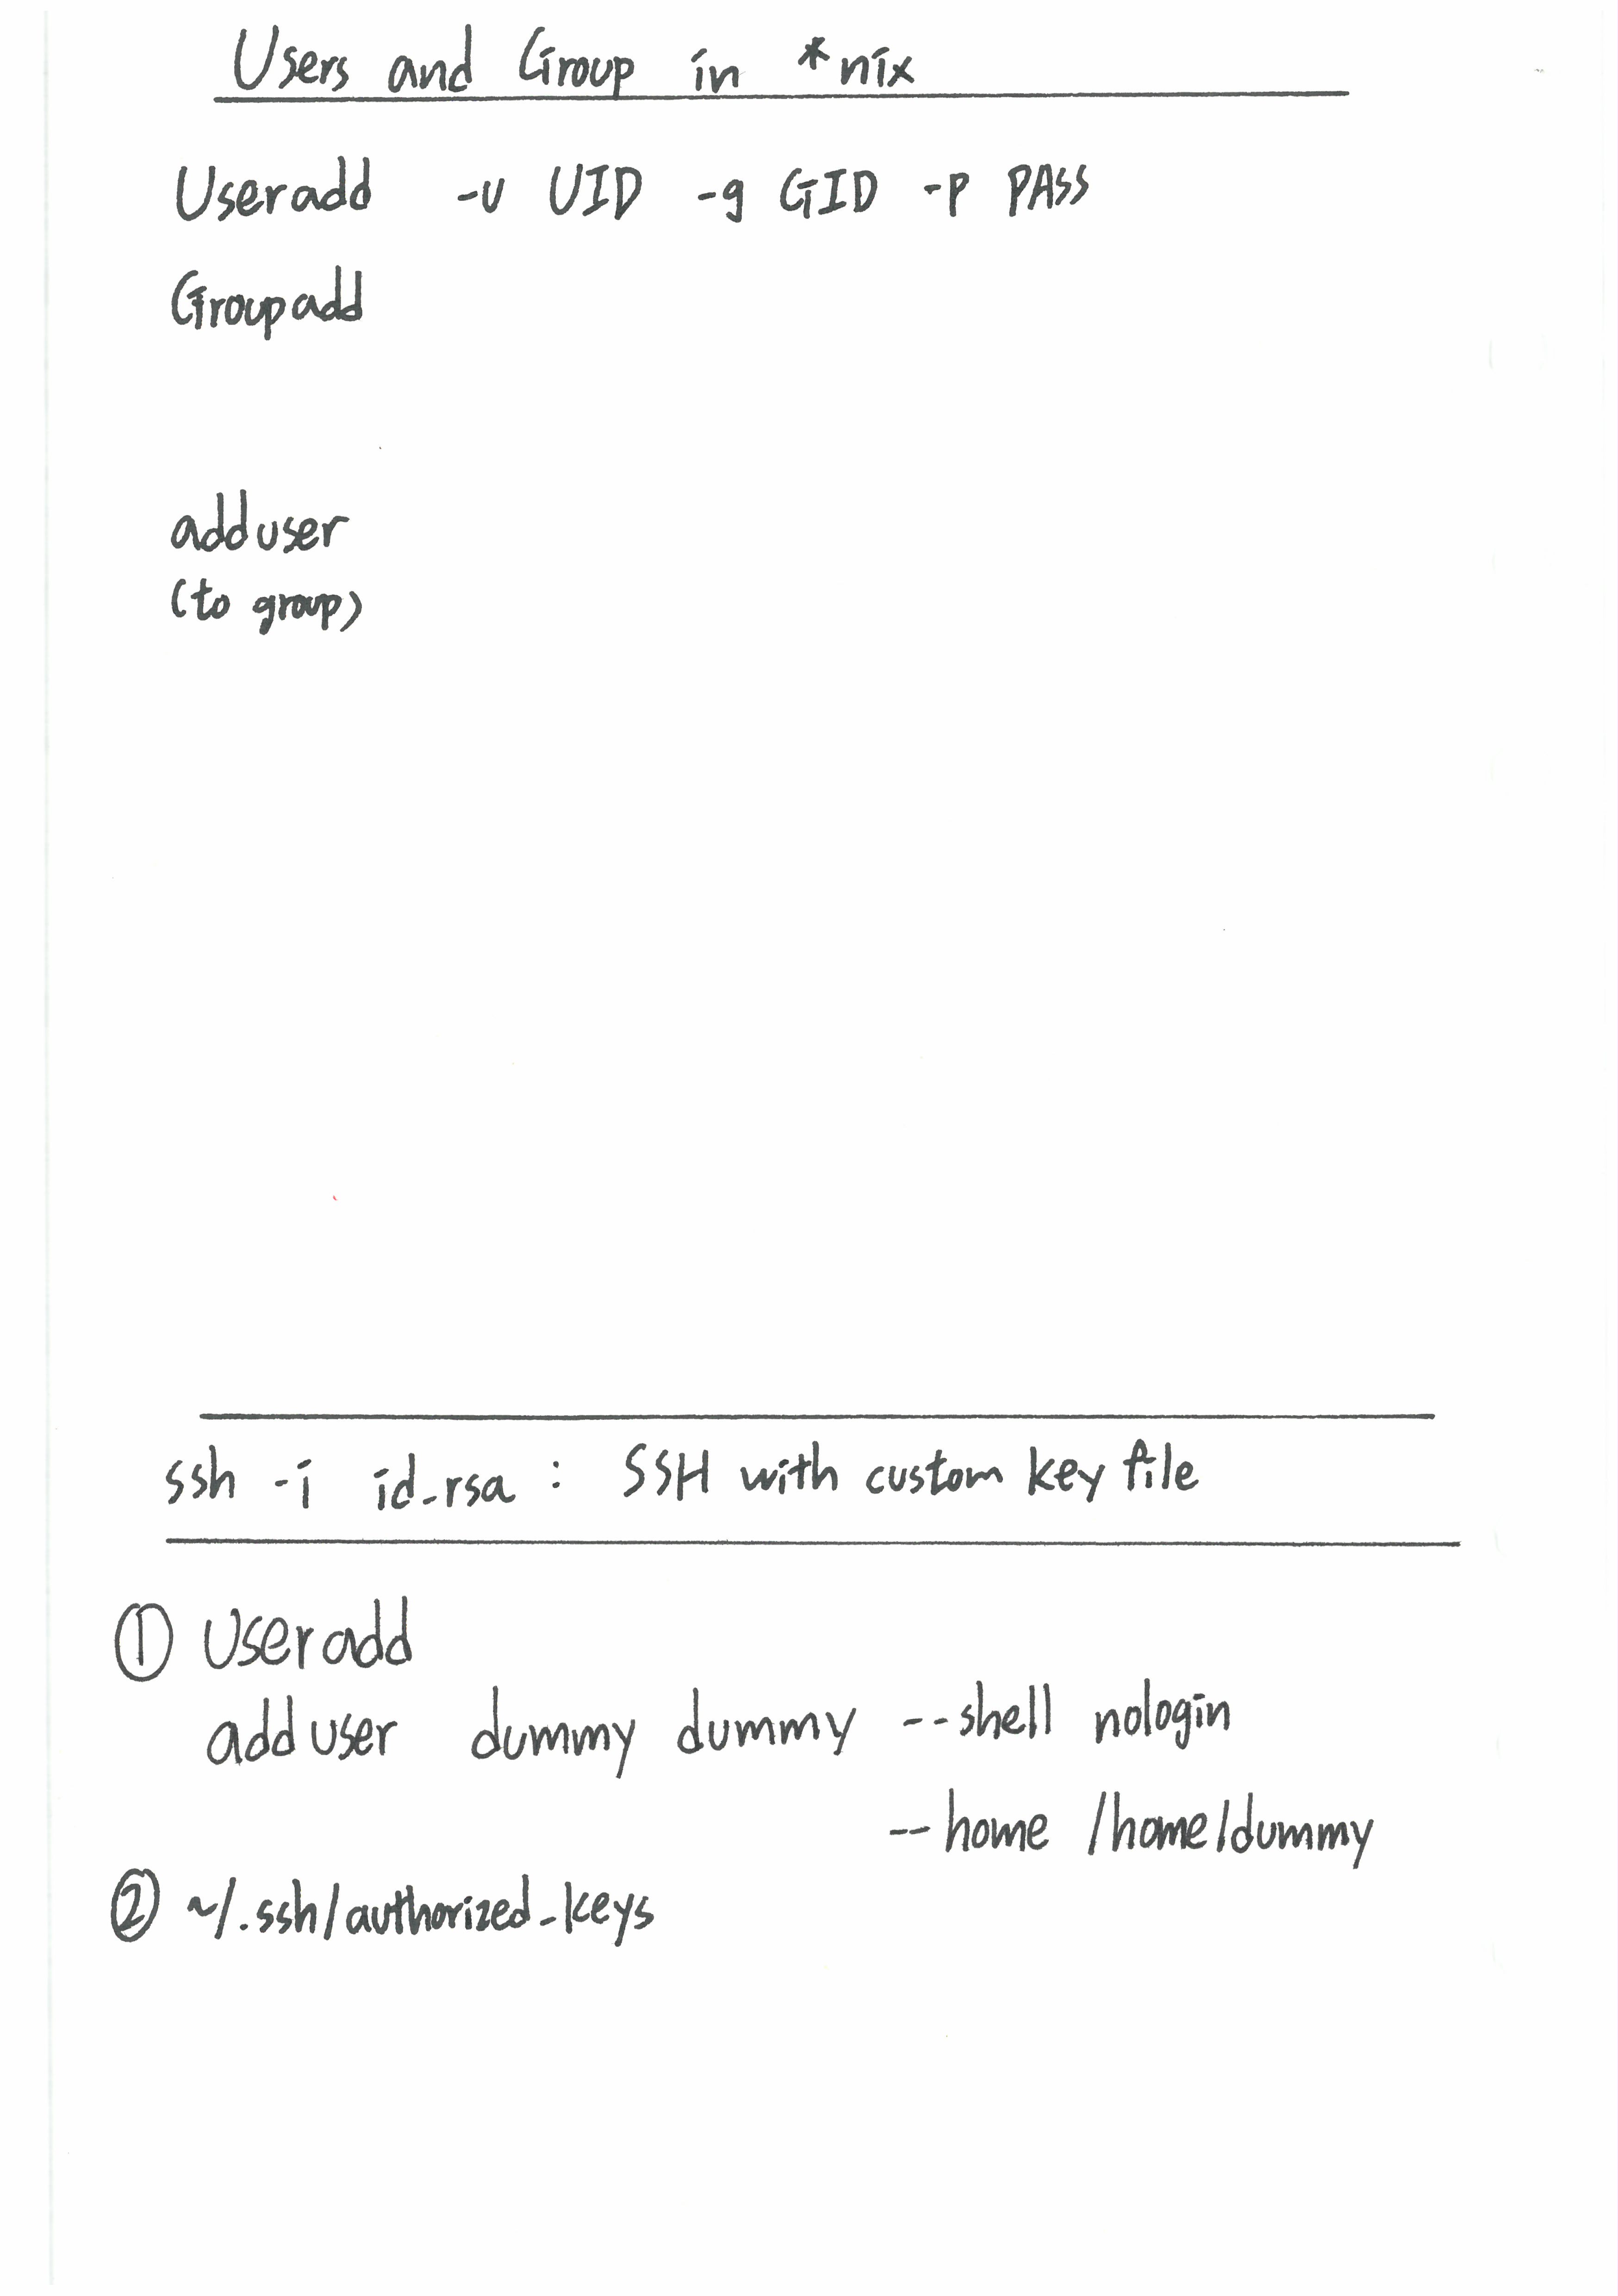 Users and Group in *nix
Useradd -u UID -g GID -p PASS
Groupadd
adduser
(to group)
ssh -i id_rsa : SSH with custom key file
① Useradd
adduser dummy dummy --shell nologin
--home /home/dummy
② ~/.ssh/authorized_keys